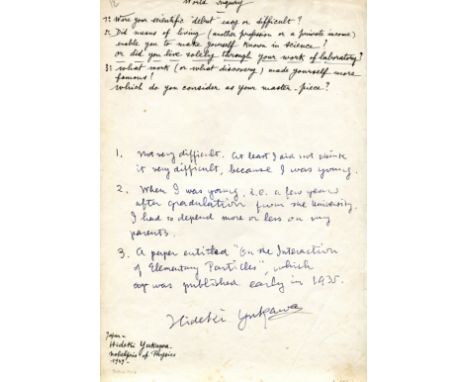 World Inquiry
1º Were your scientific debut easy or difficult?
2: Did means of living (another profession or a private income)
enable you to make yourself known in science?
or did you live solely through your work of laboratory?
3: what work (or what discovery) made yourself more
famous?
which do you consider as your master-piece?
1. Not very difficult. At least I did not think
it very difficult, because I was young.
2. When I was young, i.e. a few years
after graduation from the University,
I had to depend more or less on my
parents.
3. A paper entitled "On the Interaction
of Elementary Particles", which
was published early in 1935.
Hideki Yukawa
Japan -
Hideki Yukawa
nobelprize of Physics
1949 -